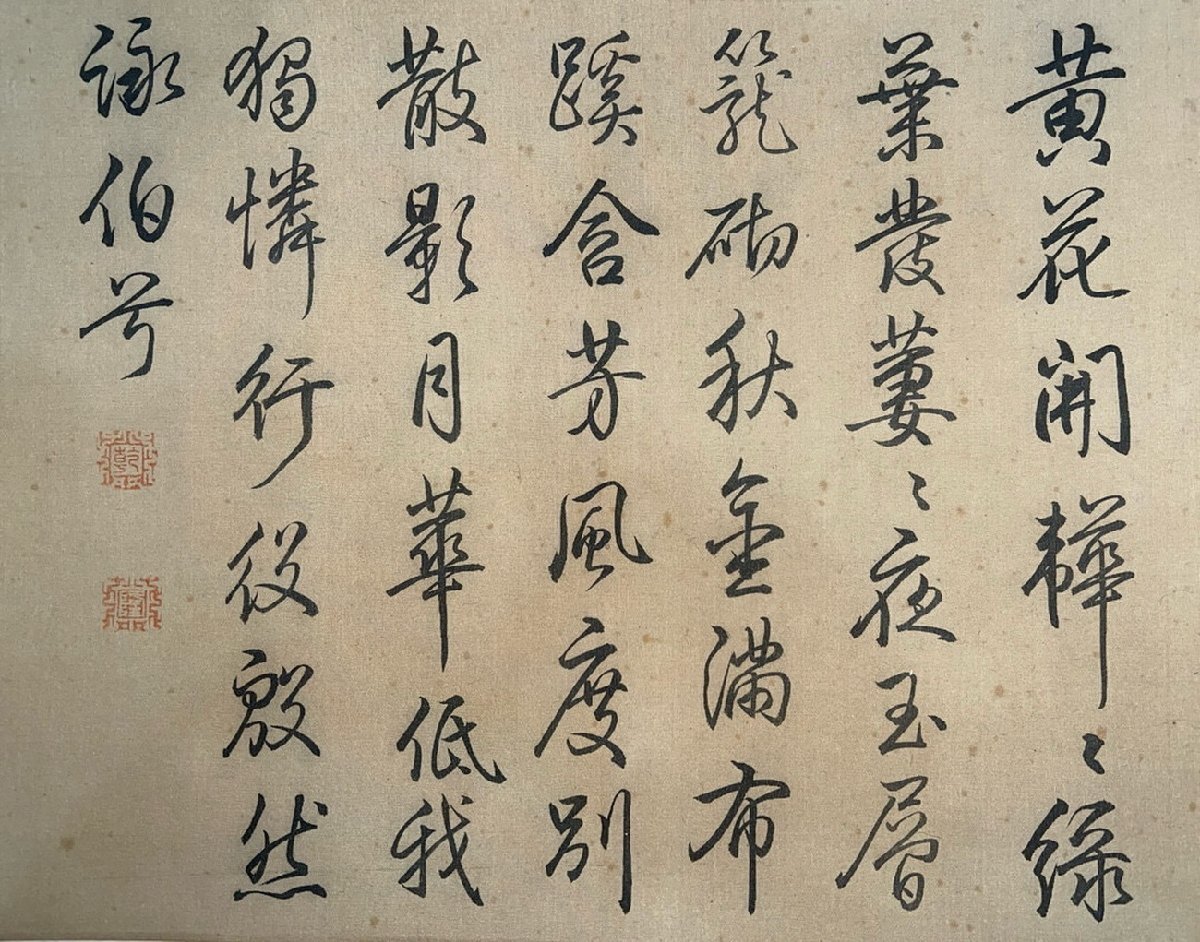 黄花開韡〻綠
葉發萋〻夜玉層
籠砌秋金滿布
蹊含芳風度別
散影月華低我
獨憐行役殷然
詠伯兮